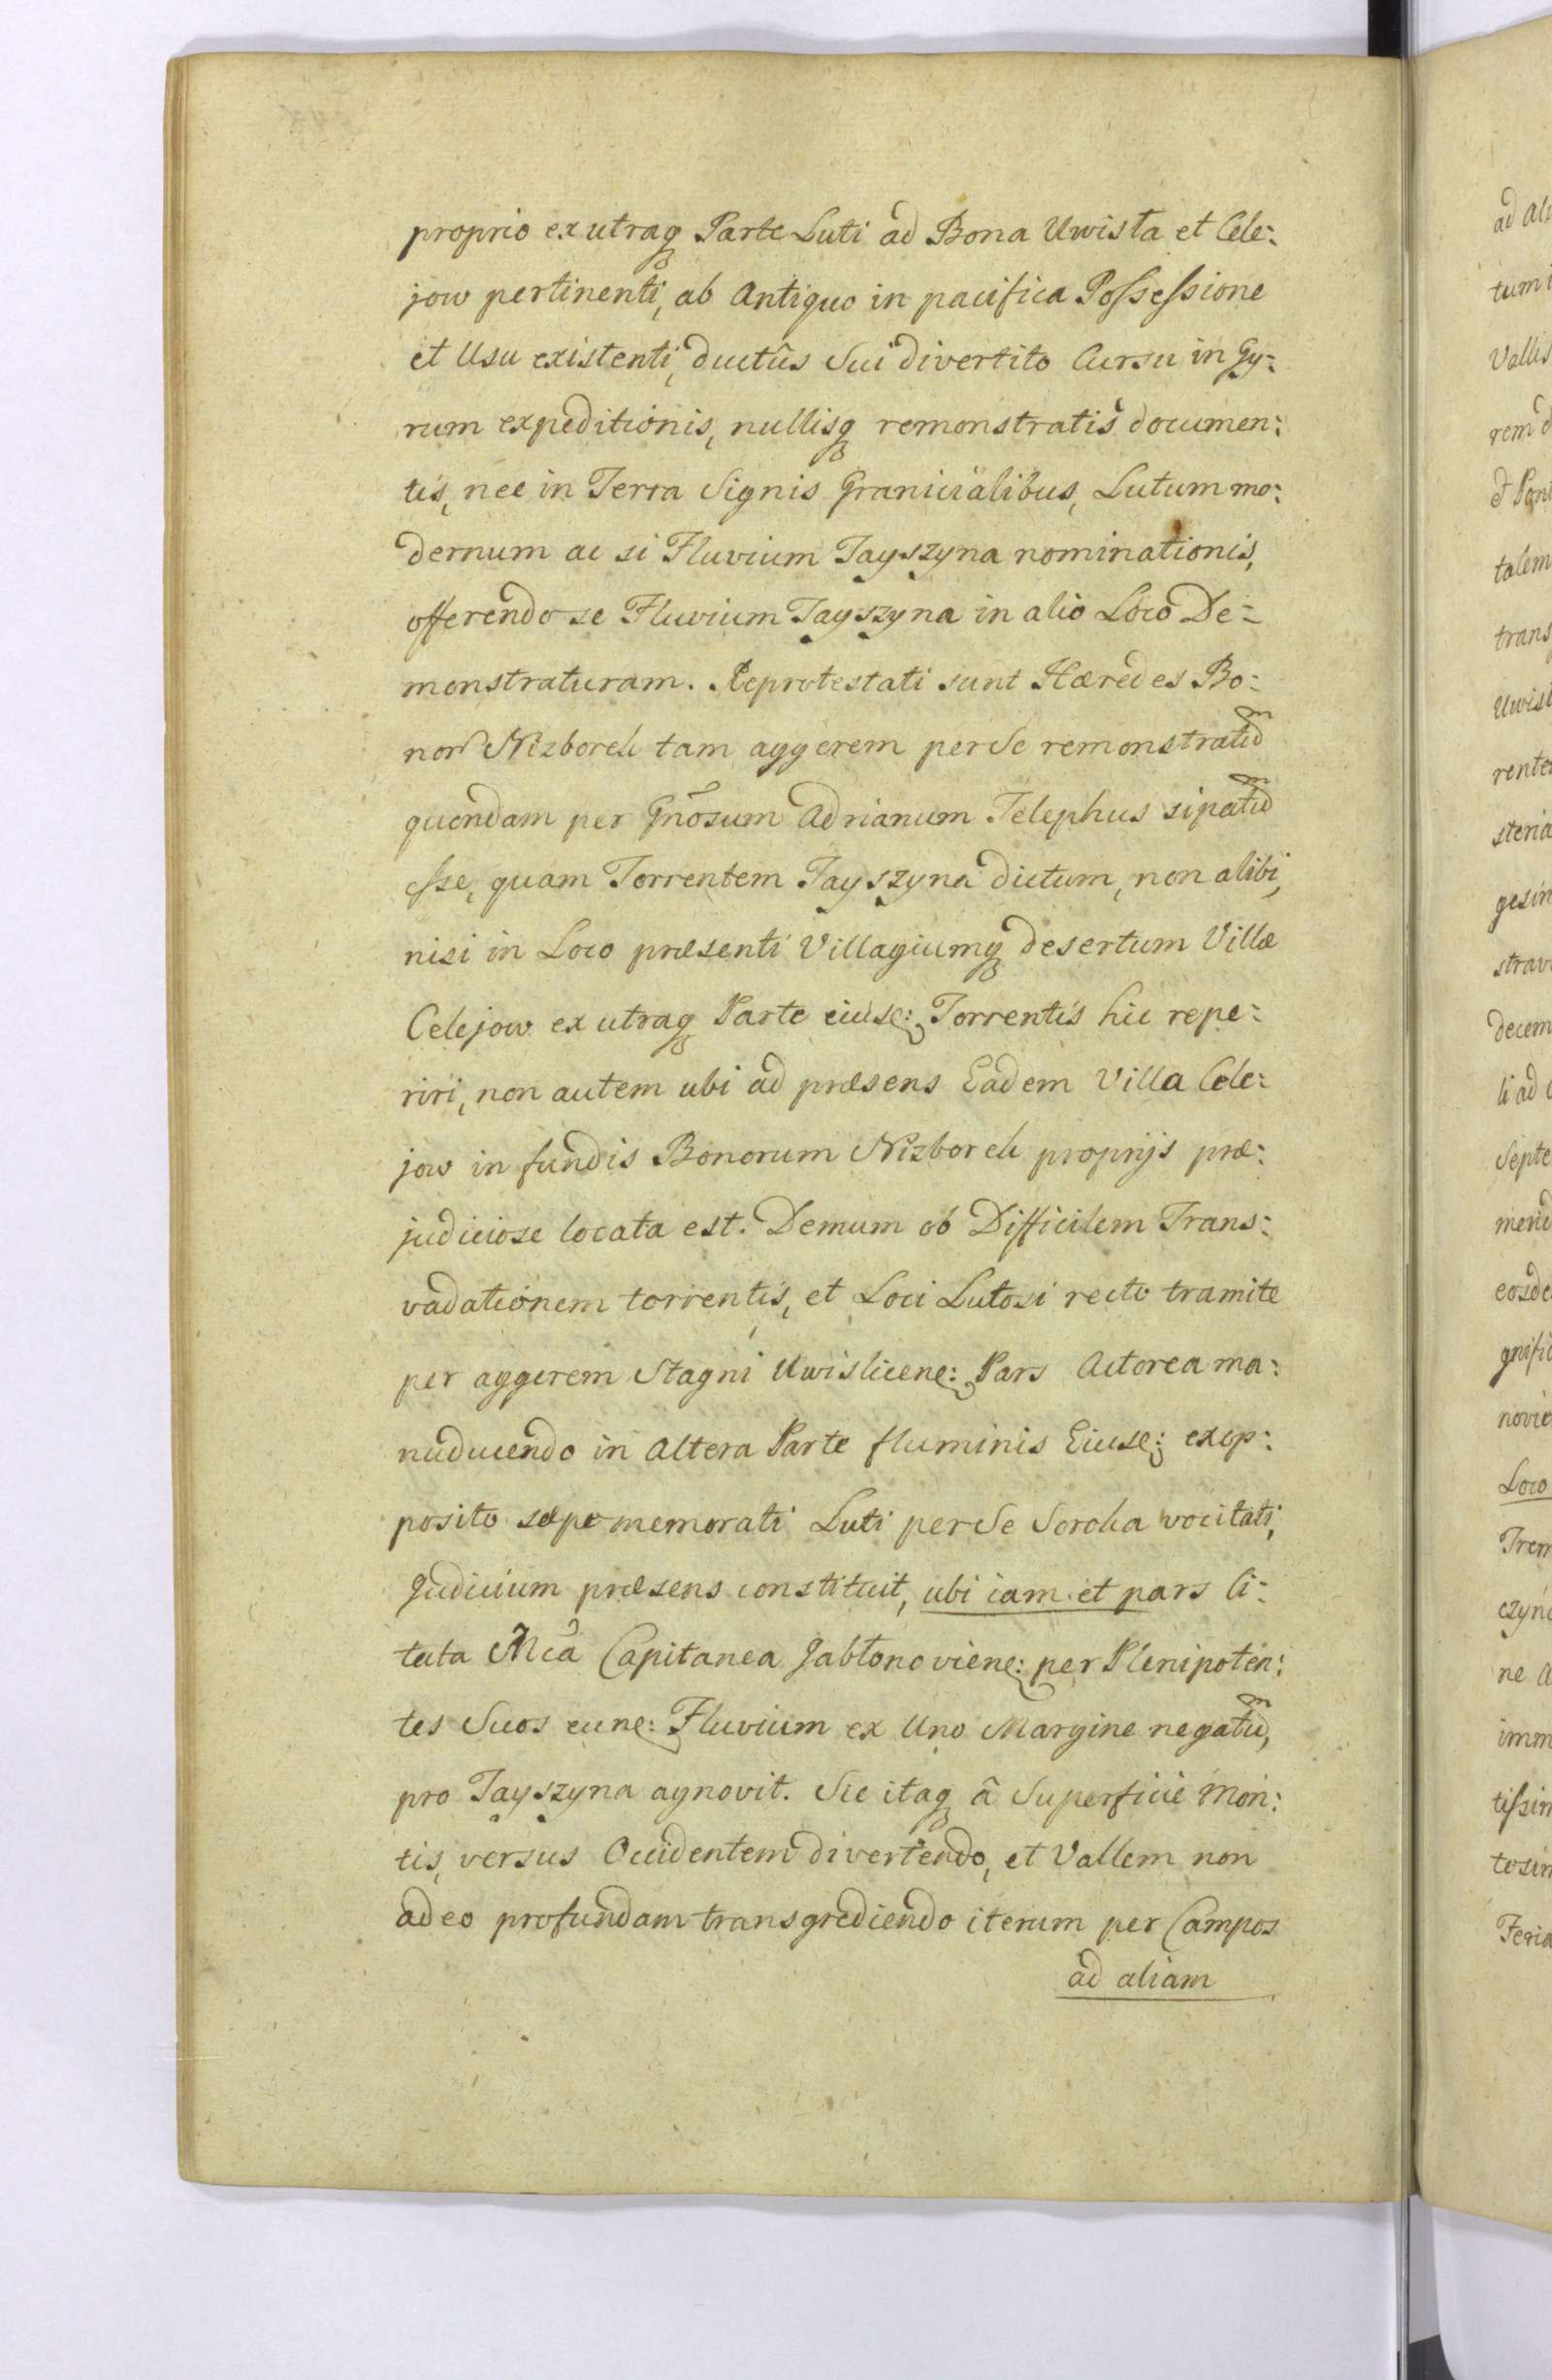 proprio ex utraq Parte Luti ad Bona Uwista et Cele:
jow pertinenti, ab Antiquo in pacifica Possessione
et Usu existenti, ductûs Sui divertito Cursu in Gy:
rum expeditionis, nullisq remonstratis documen:
tis, nec in Terra Signis Granicialibus, Lutum mo:
dernum ac si Fluvium Tayszyna nominationis,
offerendo se Fluvium Tayszyna in alio Loco De=
monstraturam. Reprotestati sunt Hæredes Bo:
nor Nizboreh tam aggerem per Se remonstratũ
quondam per Gñosum Adrianum Telephus sipatũ
esse, quam Torrentem Tayszyna dictum, non alibi,
nisi in Loco præsenti Villagiumq desertum Villæ
Celejow ex utraq Parte eiusc: Torrentis hic repe:
riri, non autem ubi ad præsens Eadem Villa Cele:
jow in fundis Bonorum Nizboreh proprijs præ:
judiciose locata est. Demum ob Difficilem Trans:
vadationem torrentis, et Loci Lutosi recto tramite
per aggerem Stagni Uwislicene: Pars Actorea ma:
nuducendo in altera Parte fluminis Eiusc: exop:
posito sæpe memorati Luti per Se Soroka vocitati,
Judicium præsens constituit, ubi iam et pars Ci:
tata Mcã Capitanea Jabłonoviene: per Plenipoten:
tes Suos eunc: Fluvium ex Uno Margine negatũ,
pro Tayszyna agnovit. Sic itaq â Superficie Mon:
tis, versus Occidentem divertendo, et Vallem non
adeo profundam transgrediendo iterum per Campos
ad aliam
ad ali
tum i
Vallis
rem d
talem
trans
Uwist
rente
steria
gesin
strav
decem
li ad
Septe
mend
eosde
gnific
novie
Loco
Trem
czyn
ne a
imm
tissim
tosim
Feria